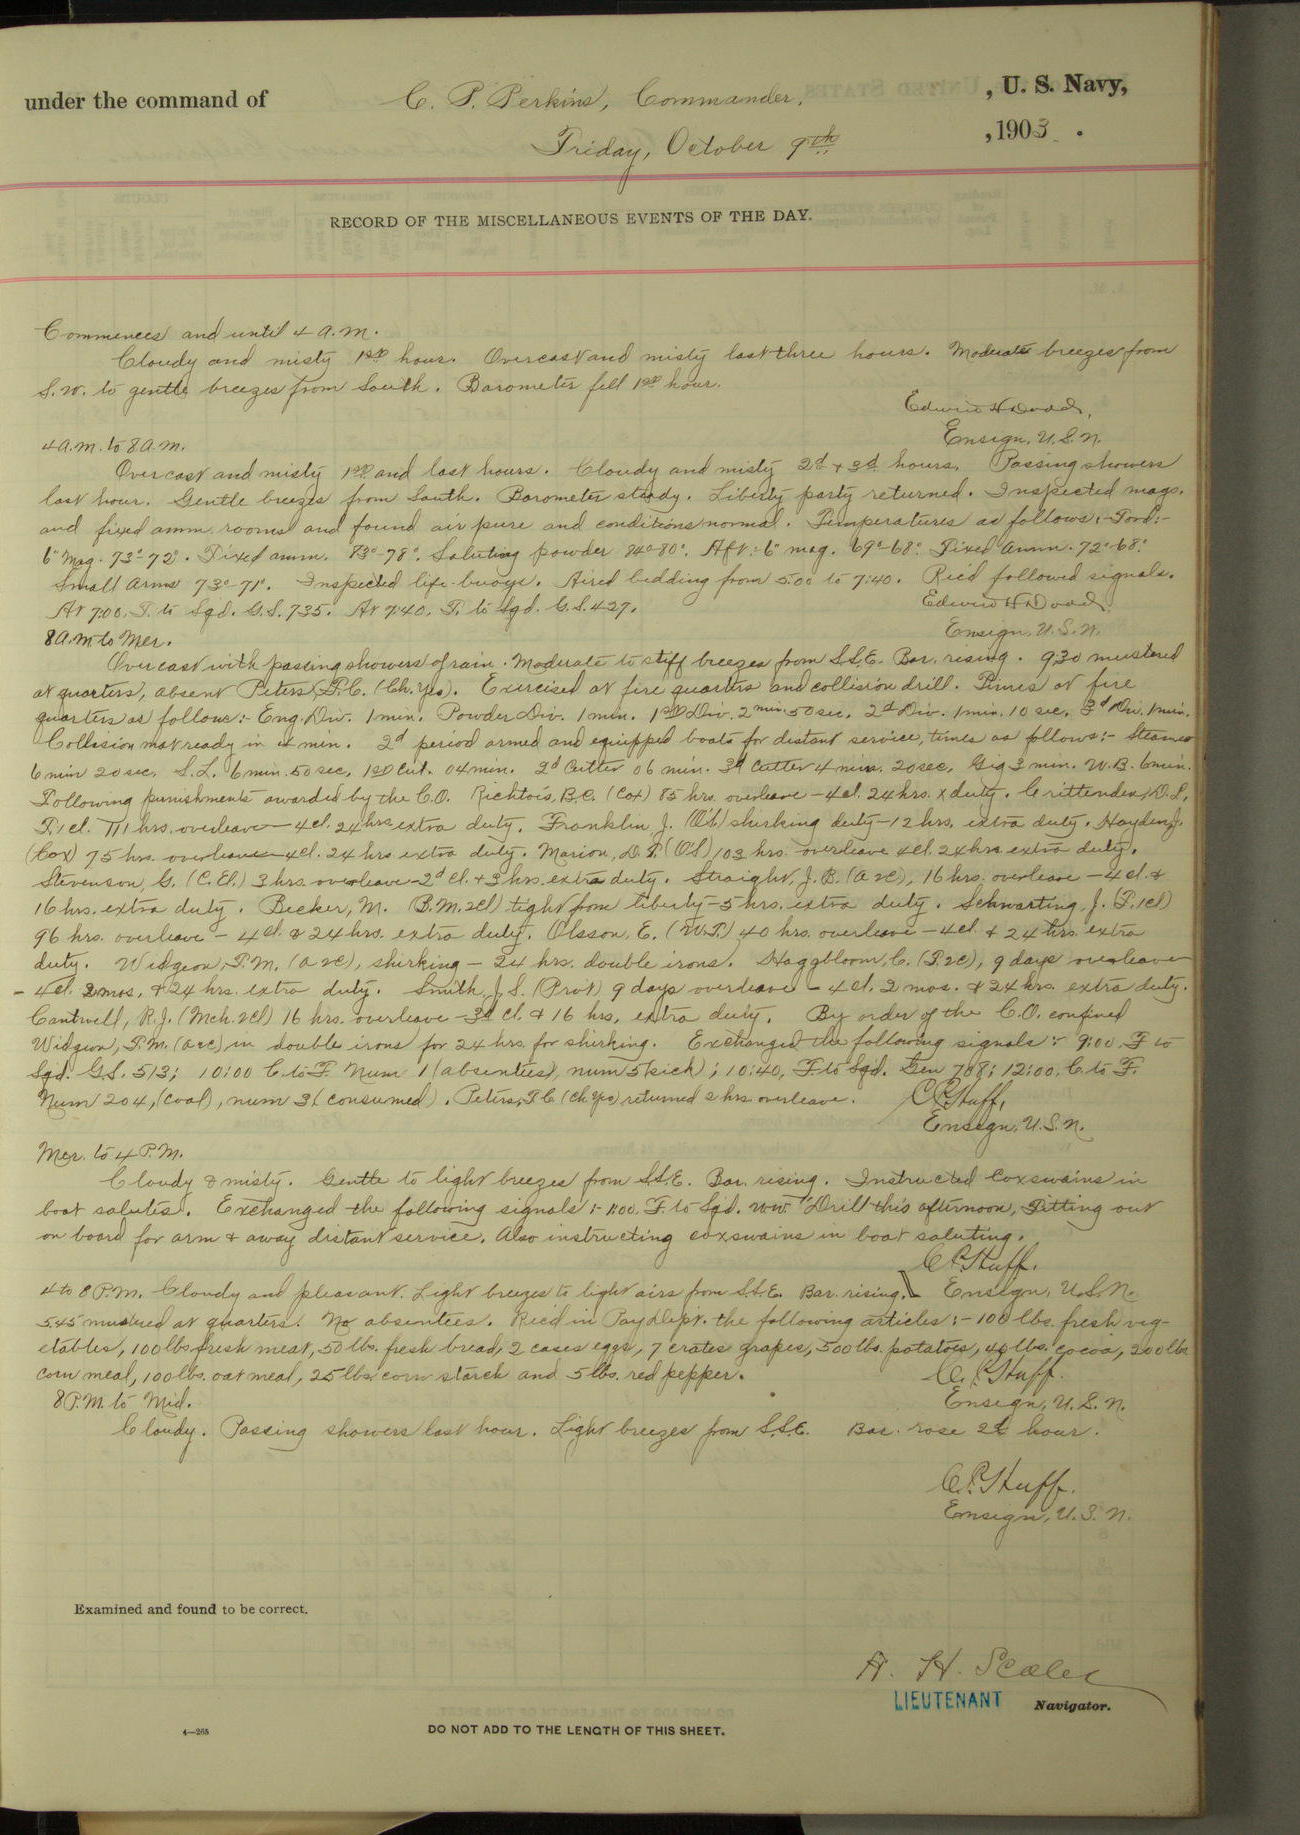 under the command of C. P. Perkins, Commander, , U. S. Navy,
Friday, October 9th , 1903 .
RECORD OF THE MISCELLANEOUS EVENTS OF THE DAY.
Commences and until 4 a.m.
Cloudy and misty 1st hour. Overcast and misty last three hours. Moderate breezes from
S.W. to gentle breezes from South. Barometer fell 1st hour.
Edwin H Dodd,
Ensign, U.S.N.
4 a.m. to 8 a.m.
Overcast and misty 1st and last hours. Cloudy and misty 2d + 3d hours. Passing showers
last hour. Gentle breezes from South. Barometer steady. Liberty party returned. Inspected mags.
and fixed amm. rooms and found air pure and conditions normal. Temperatures as follows:- Ford:-
6" Mag. 73°-72°. Fixed amm. 83°-78°. Saluting powder 84°-80°. Aft:- 6" mag. 69°-68°. Fixed amm. 72°-68°.
Small arms 73°-71°. Inspected life-buoys. Aired bedding from 5:00 to 7:40. Rec'd followed signals.
At 7:00, F. to Sqd. G.S. 735. At 7:40, F. to Sqd. G.S. 427.
Edwin H Dodd,
Ensign, U.S.N.
8 A.M. to Mer.
Overcast with passing showers of rain. Moderate to stiff breezes from S.S.E. Bar. rising. 9:30 mustered
at quarters, absent Peters, P.C. (Ch. Yeo). Exercised at fire quarters and collision drill. Times at fire
quarters as follows:- Eng. Div. 1 min. Powder Div. 1 min. 1st Div. 2 min. 50 sec. 2d Div. 1 min. 10 sec. 3d Div. 1 min.
Collision mat ready in 4 min. 2d period armed and equipped boats for distant service, times as follows:- Steamer
6 min 20 sec. S.L. 6 min. 50 sec. 1st Cut. 04 min. 2d Cutter 06 min. 3d Cutter 4 min. 20 sec. Gig 3 min. W.B. 6 min.
Following punishments awarded by the C.O. B.C. (Cox) 85 hrs. overleave - 4 cl. 24 hrs. x duty. Crittenden, D.L.
F. 1 cl. 111 hrs. overleave - 4 cl. 24 hrs extra duty. Franklin J. (O.S.) shirking duty - 12 hrs. extra duty. Hayden J.
(Cox) 75 hrs. overleave - 4 cl. 24 hrs extra duty. Marion, D.F. (O.S.) 103 hrs. overleave 4 cl. 24 hrs extra duty.
Stevenson, G. (C. El.) 3 hrs. overleave - 2d cl. + 3 hrs. extra duty. Straight, J.B. (a 2c), 16 hrs. overleave - 4 cl. &
16 hrs. extra duty. Becker, M. (B.M. 2cl) tight from liberty - 5 hrs. extra duty. Schwarting, J. (F. 1cl)
96 hrs. overleave - 4 cl. & 24 hrs. extra duty. Olsson, E. (W.T.) 40 hrs. overleave - 4 cl. & 24 hrs. extra
duty. Widgeon, P.M. (a 2c), shirking - 24 hrs. double irons. Haggbloom, C. (F. 2c), 9 days overleave
- 4 cl. 2 mos. & 24 hrs. extra duty. Smith, J.S. (Prvt) 9 days overleave - 4 cl. 2 mos. & 24 hrs. extra duty.
Cantwell, R.J. (Mch. 2cl) 16 hrs. overleave - 3d cl. & 16 hrs. extra duty. By order of the C.O. confined
Widgeon, P.M. (a 2c) in double irons for 24 hrs. for shirking. Exchanged the following signals:- 9:00 F to
Sqd. G.S. 513; 10:00 C. to F. Num 1 (absentees), num 5 (sick); 10:40, F. to Sqd. Gen 788; 12:00, C. to F.
Num 204, (coal), num 31 (consumed). Peters, P C (Ch Yeo) returned 2 hrs. overleave.
C.P. Huff,
Ensign, U.S.N.
Mer. to 4 P.M.
Cloudy & misty. Gentle to light breezes from S.S.E. Bar. rising. Instructed Coxswains in
boat salutes. Exchanged the following signals:- 1:00 F. to Sqd. WW "Drill this afternoon, Fitting out
on board for arm & away distant service. Also instructing coxswains in boat saluting.
C.P. Huff.
Ensign, U.S.N.
4 to 8 P.M. Cloudy and pleasant. Light breezes to light airs from S.S.E. Bar. rising.
5:45 mustered at quarters. No absentees. Rec'd in Pay Dept. the following articles:- 100 lbs. fresh veg-
etables, 100 lbs. fresh meat, 50 lbs. fresh bread, 2 cases eggs, 7 crates grapes, 500 lbs. potatoes, 40 lbs. cocoa, 200 lbs
corn meal, 100 lbs. oat meal, 25 lbs corn starch and 5 lbs. red pepper.
C.P. Huff.
Ensign, U.S.N.
8 P.M. to Mid.
Cloudy. Passing showers last hour. Light breezes from S.S.E. Bar. rose 2d hour.
C.P. Huff.
Ensign, U.S.N.
Examined and found to be correct.
A. H. Scales
LIEUTENANT Navigator.
4—265
DO NOT ADD TO THE LENGTH OF THIS SHEET.